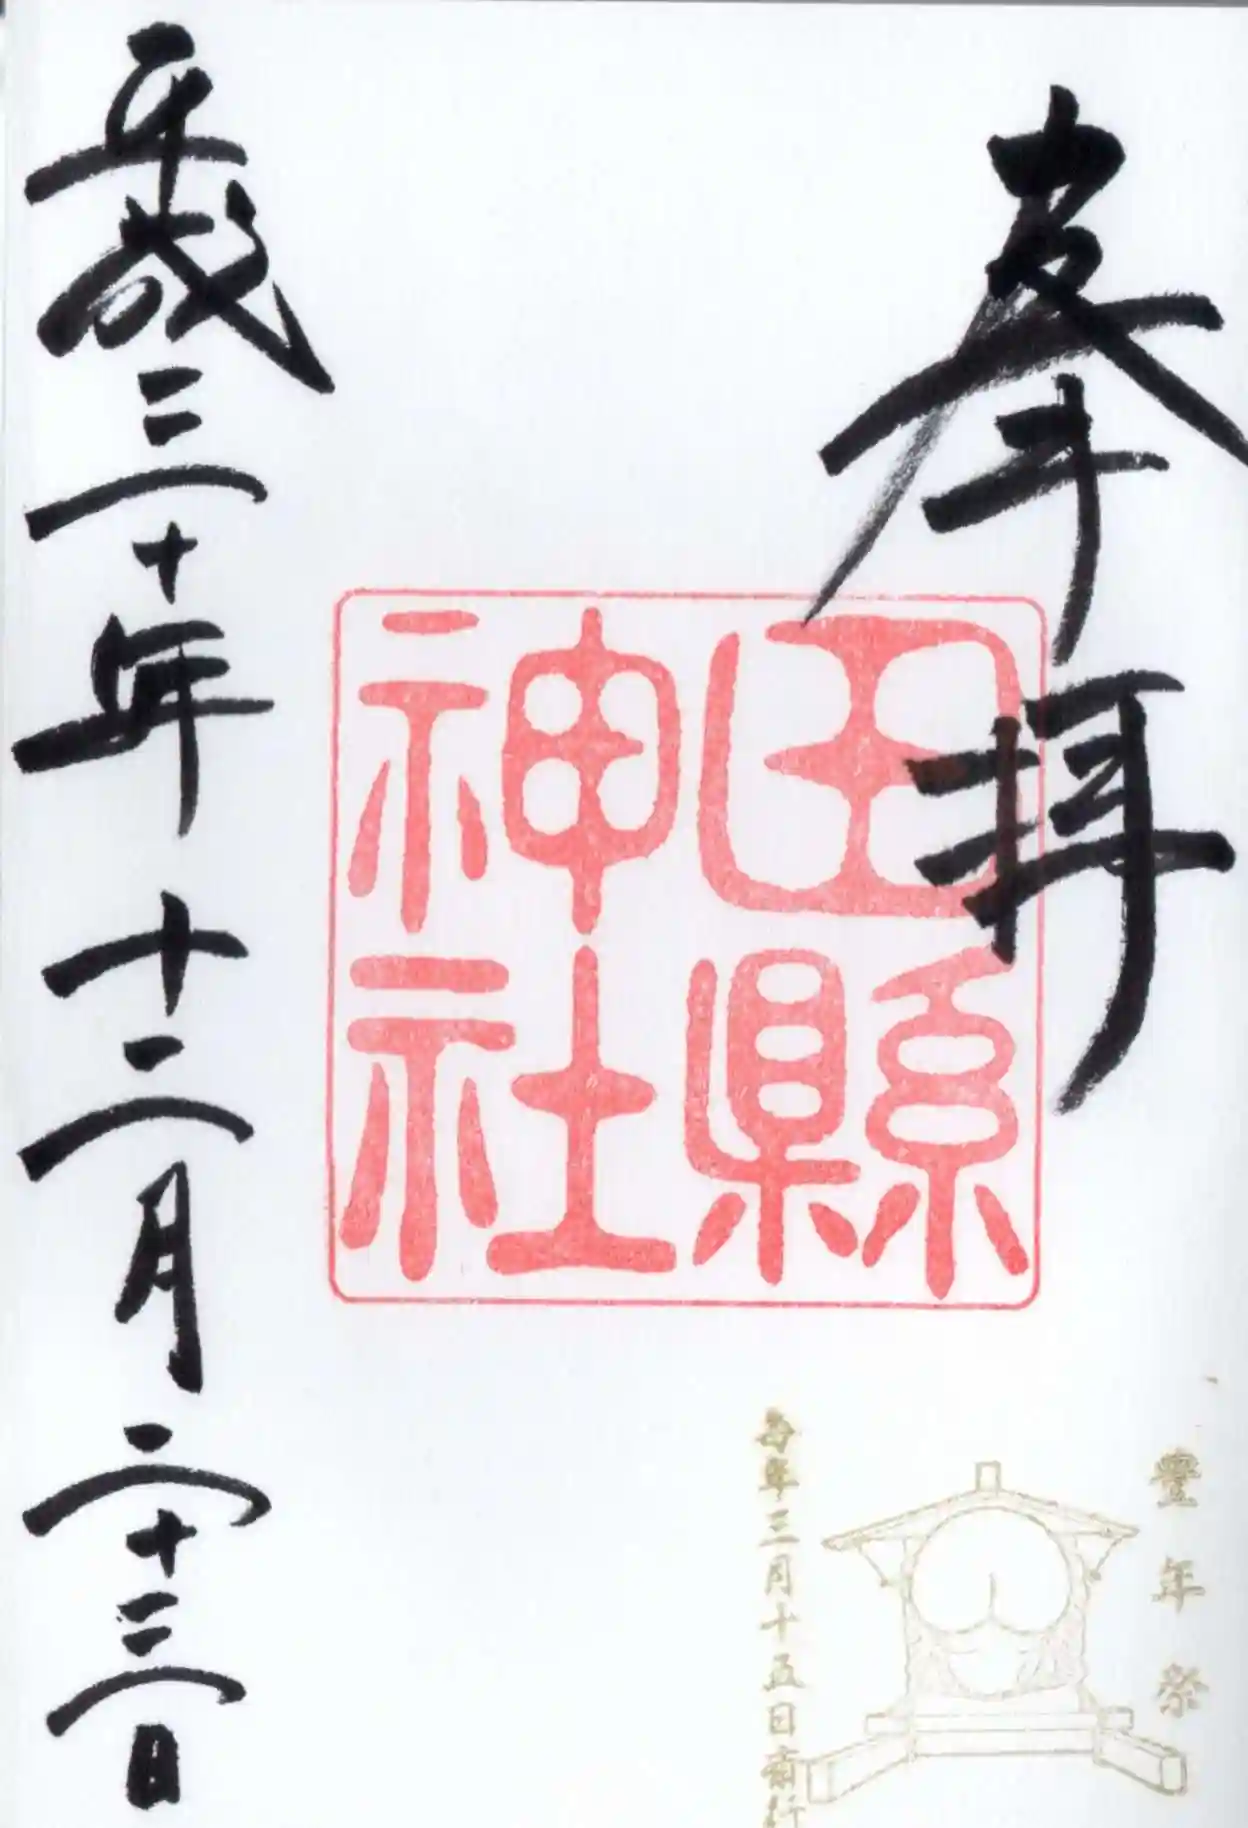 奉拝
田縣
神社
平成三十年十二月二十三日
豐年祭
毎年三月十五日斎行